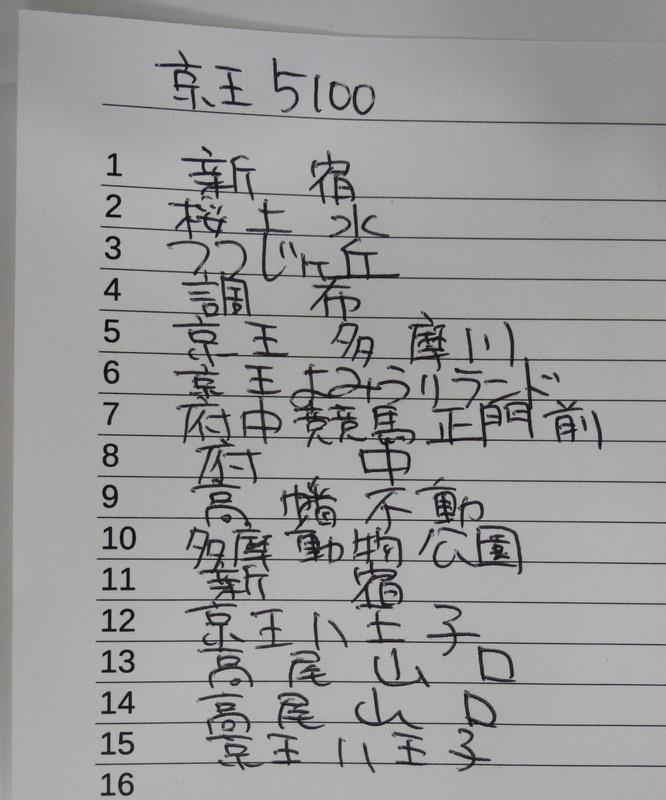 京王5100
1 新宿
2 桜上水
3 つつじヶ丘
4 調布
5 京王多摩川
6 京王よみうりランド
7 府中競馬正門前
8 府中
9 高幡不動
10 多摩動物公園
11 新宿
12 京王八王子
13 高尾山口
14 高尾山口
15 京王八王子
16